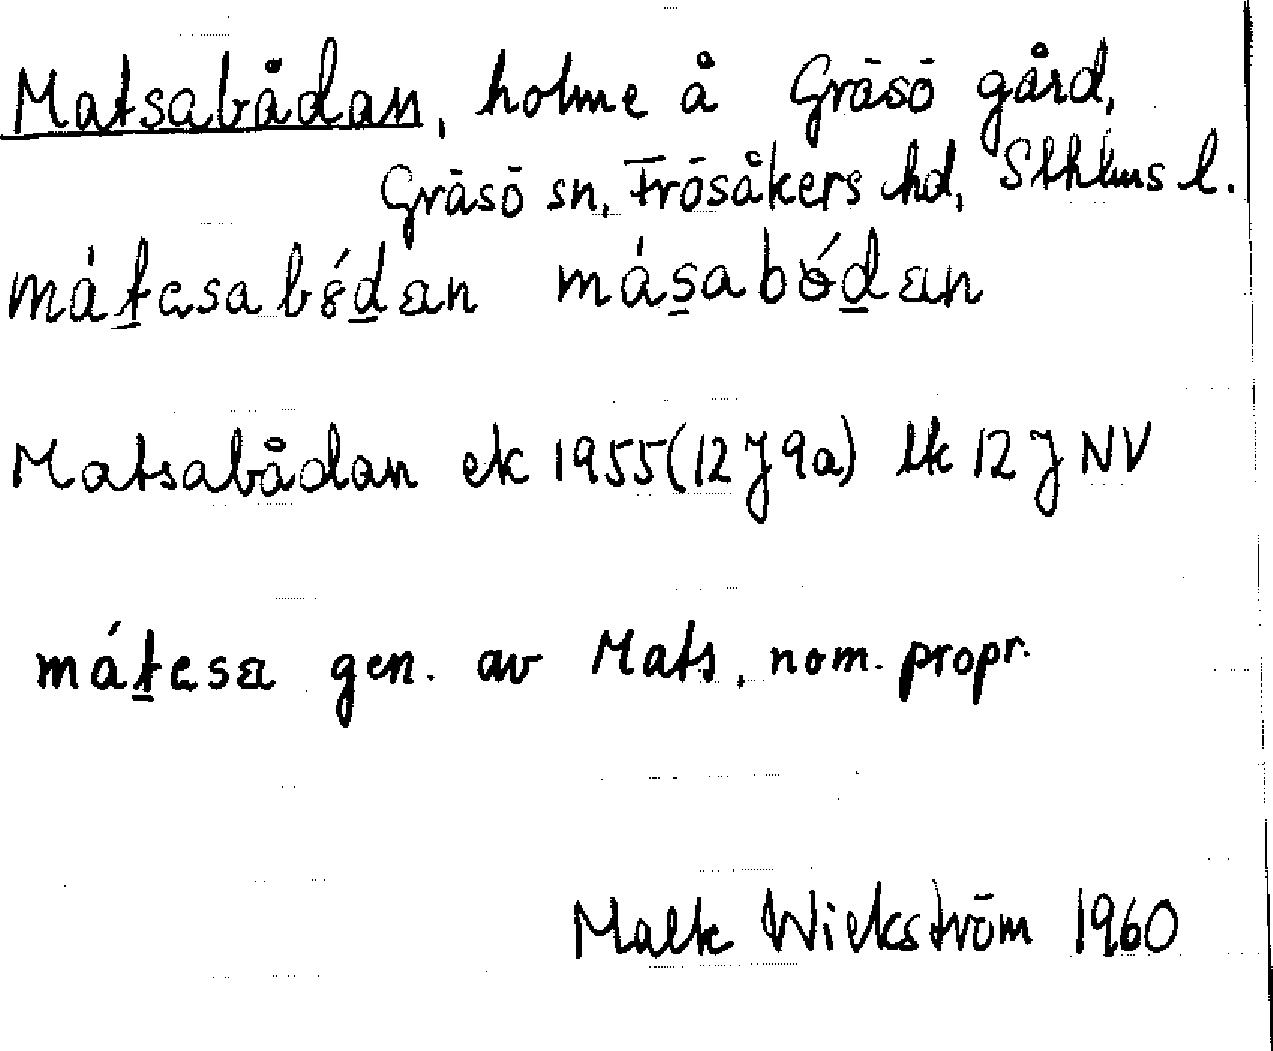 Matsabådan, holme å Gräsö gård,
Gräsö sn, Frösåkers hd, Sthlms l.
Matsabådan ek 1955 (12J9a) lk 12J NV
gen. av Mats, nom. propr.
Malk Wickström 1960